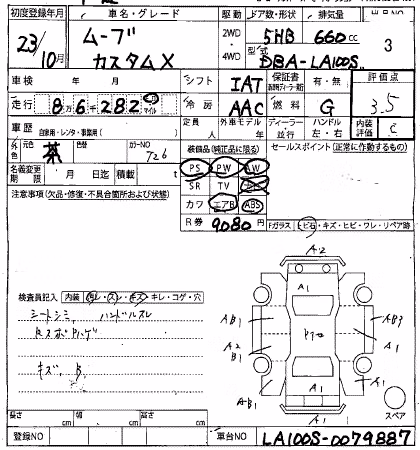 初度登録年月 車名・グレード 駆動 ドア数・形状 排気量
23/10月 ムーブ カスタムX 2WD・4WD 5HB 660cc 3
型式 DBA-LA100S
車検 年 月 シフト IAT 保証書 有・無 評価点
走行 8万6千282 km マイル 冷房 AAC 燃料 G 3.5
車歴 自家用・レンタ・事業用( ) 定員 人 外車モデル 年 ディーラー 並行 ハンドル 左・右 内装評価 C
外色 元色 茶 色替 カラーNO T26 装備品(純正品に限る) セールスポイント(正常に作動するもの)
名義変更期限 月 日迄 積載 t PS PW AW
注意事項(欠品・修復・不具合箇所および状態) SR TV
カワ エアB ABS
R券 9080円 Fガラス トビ石・キズ・ヒビ・ワレ・リペア跡
検査員記入 内装 汚レ・スレ・キズ・キレ・コゲ・穴
シートシミ、ハンドルスレ
キズ、B、
A2
A1
AB1
AB3
A2
B1
A1
A1
AB1
A1
A1
スペア
長さ cm 幅 cm 高さ cm
登録NO 車台NO LA100S-0079887